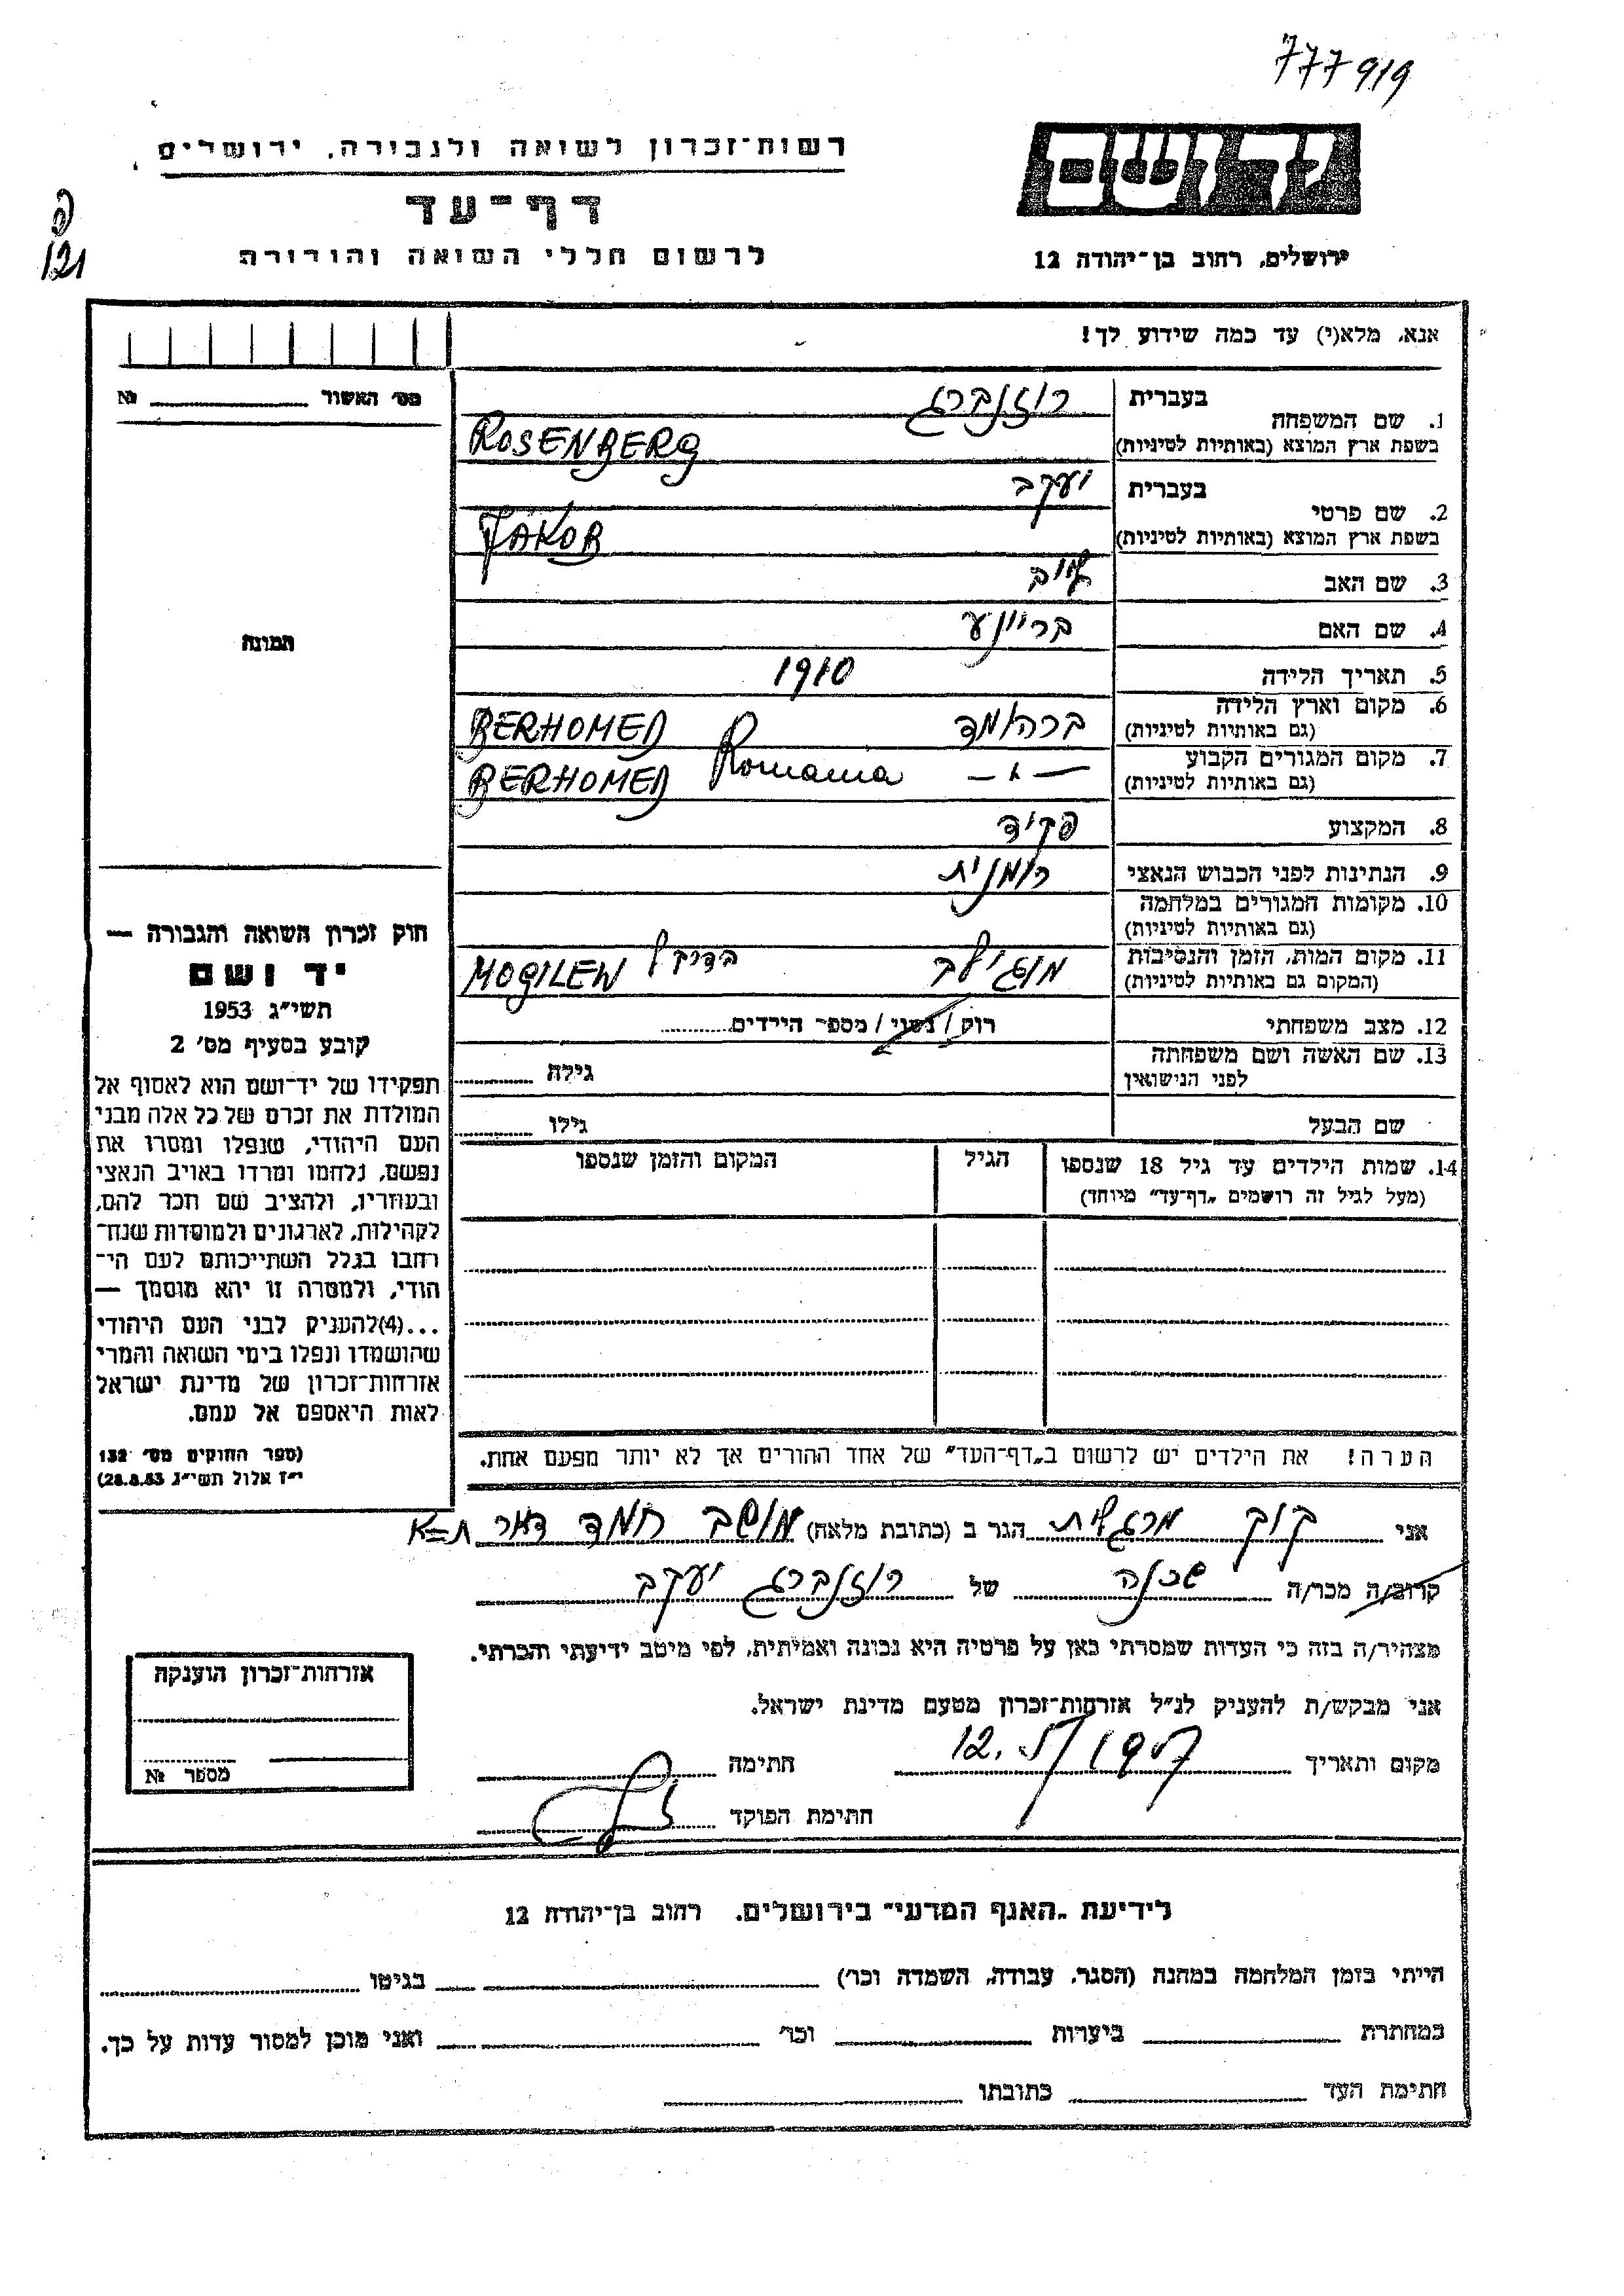 777919
יד ושם
ירושלים, רחוב בן-יהודה 12
רשות-זכרון לשואה ולגבורה, ירושלים
דף-עד
לרשום חללי השואה והגבורה
121
אנא, מלא(י) עד כמה שידוע לך!
מס' האשור №
1. שם המשפחה בעברית רוזנברג
בשפת ארץ המוצא (באותיות לטיניות) ROSENBERG
2. שם פרטי בעברית יעקב
בשפת ארץ המוצא (באותיות לטיניות) JAKOB
3. שם האב לייב
4. שם האם בריינע
5. תאריך הלידה 1910
6. מקום וארץ הלידה ברהומד BERHOMED
(גם באותיות לטיניות) Romania
7. מקום המגורים הקבוע —״— BERHOMED
(גם באותיות לטיניות)
8. המקצוע פקיד
9. הנתינות לפני הכבוש הנאצי רומנית
10. מקומות המגורים במלחמה
(גם באותיות לטיניות)
11. מקום המות, הזמן והנסיבות מוגילב בדרך ל MOGILEW
(המקום גם באותיות לטיניות)
12. מצב משפחתי רוק / נשוי / מספר הילדים
13. שם האשה ושם משפחתה גילה
לפני הנישואין
שם הבעל גילו
14. שמות הילדים עד גיל 18 שנספו הגיל המקום והזמן שנספו
(מעל לגיל זה רושמים „דף-עד" מיוחד)
הערה! את הילדים יש לרשום ב„דף-העד" של אחד ההורים אך לא יותר מפעם אחת.
תמונה
חוק זכרון השואה והגבורה —
יד ושם
תשי"ג 1953
קובע בסעיף מס' 2
תפקידו של יד-ושם הוא לאסוף אל
המולדת את זכרם של כל אלה מבני
העם היהודי, שנפלו ומסרו את
נפשם, נלחמו ומרדו באויב הנאצי
ובעוזריו, ולהציב שם וזכר להם,
לקהילות, לארגונים ולמוסדות שנח-
רבו בגלל השתייכותם לעם הי-
הודי, ולמטרה זו יהא מוסמך —
...(4)להעניק לבני העם היהודי
שהושמדו ונפלו בימי השואה והמרי
אזרחות-זכרון של מדינת ישראל
לאות היאספם אל עמם.
(ספר החוקים מס' 132
י"ז אלול תשי"ג 28.8.53)
אני קוק מרגלית הגר ב (כתובת מלאה) מושב חמד דאר ת=א
קרוב/ה מכר/ה שכנה של רוזנברג יעקב
מצהיר/ה בזה כי העדות שמסרתי כאן על פרטיה היא נכונה ואמיתית, לפי מיטב ידיעתי והכרתי.
אני מבקש/ת להעניק לנ"ל אזרחות-זכרון מטעם מדינת ישראל.
מקום ותאריך 12.5/1957 חתימה
חתימת הפוקד
אזרחות-זכרון הוענקה
מספר №
לידיעת „האגף המדעי" בירושלים, רחוב בן-יהודה 12
הייתי בזמן המלחמה במחנה (הסגר, עבודה, השמדה וכו') בגיטו
במחתרת ביערות וכו' ואני מוכן למסור עדות על כך.
חתימת העד כתובתו